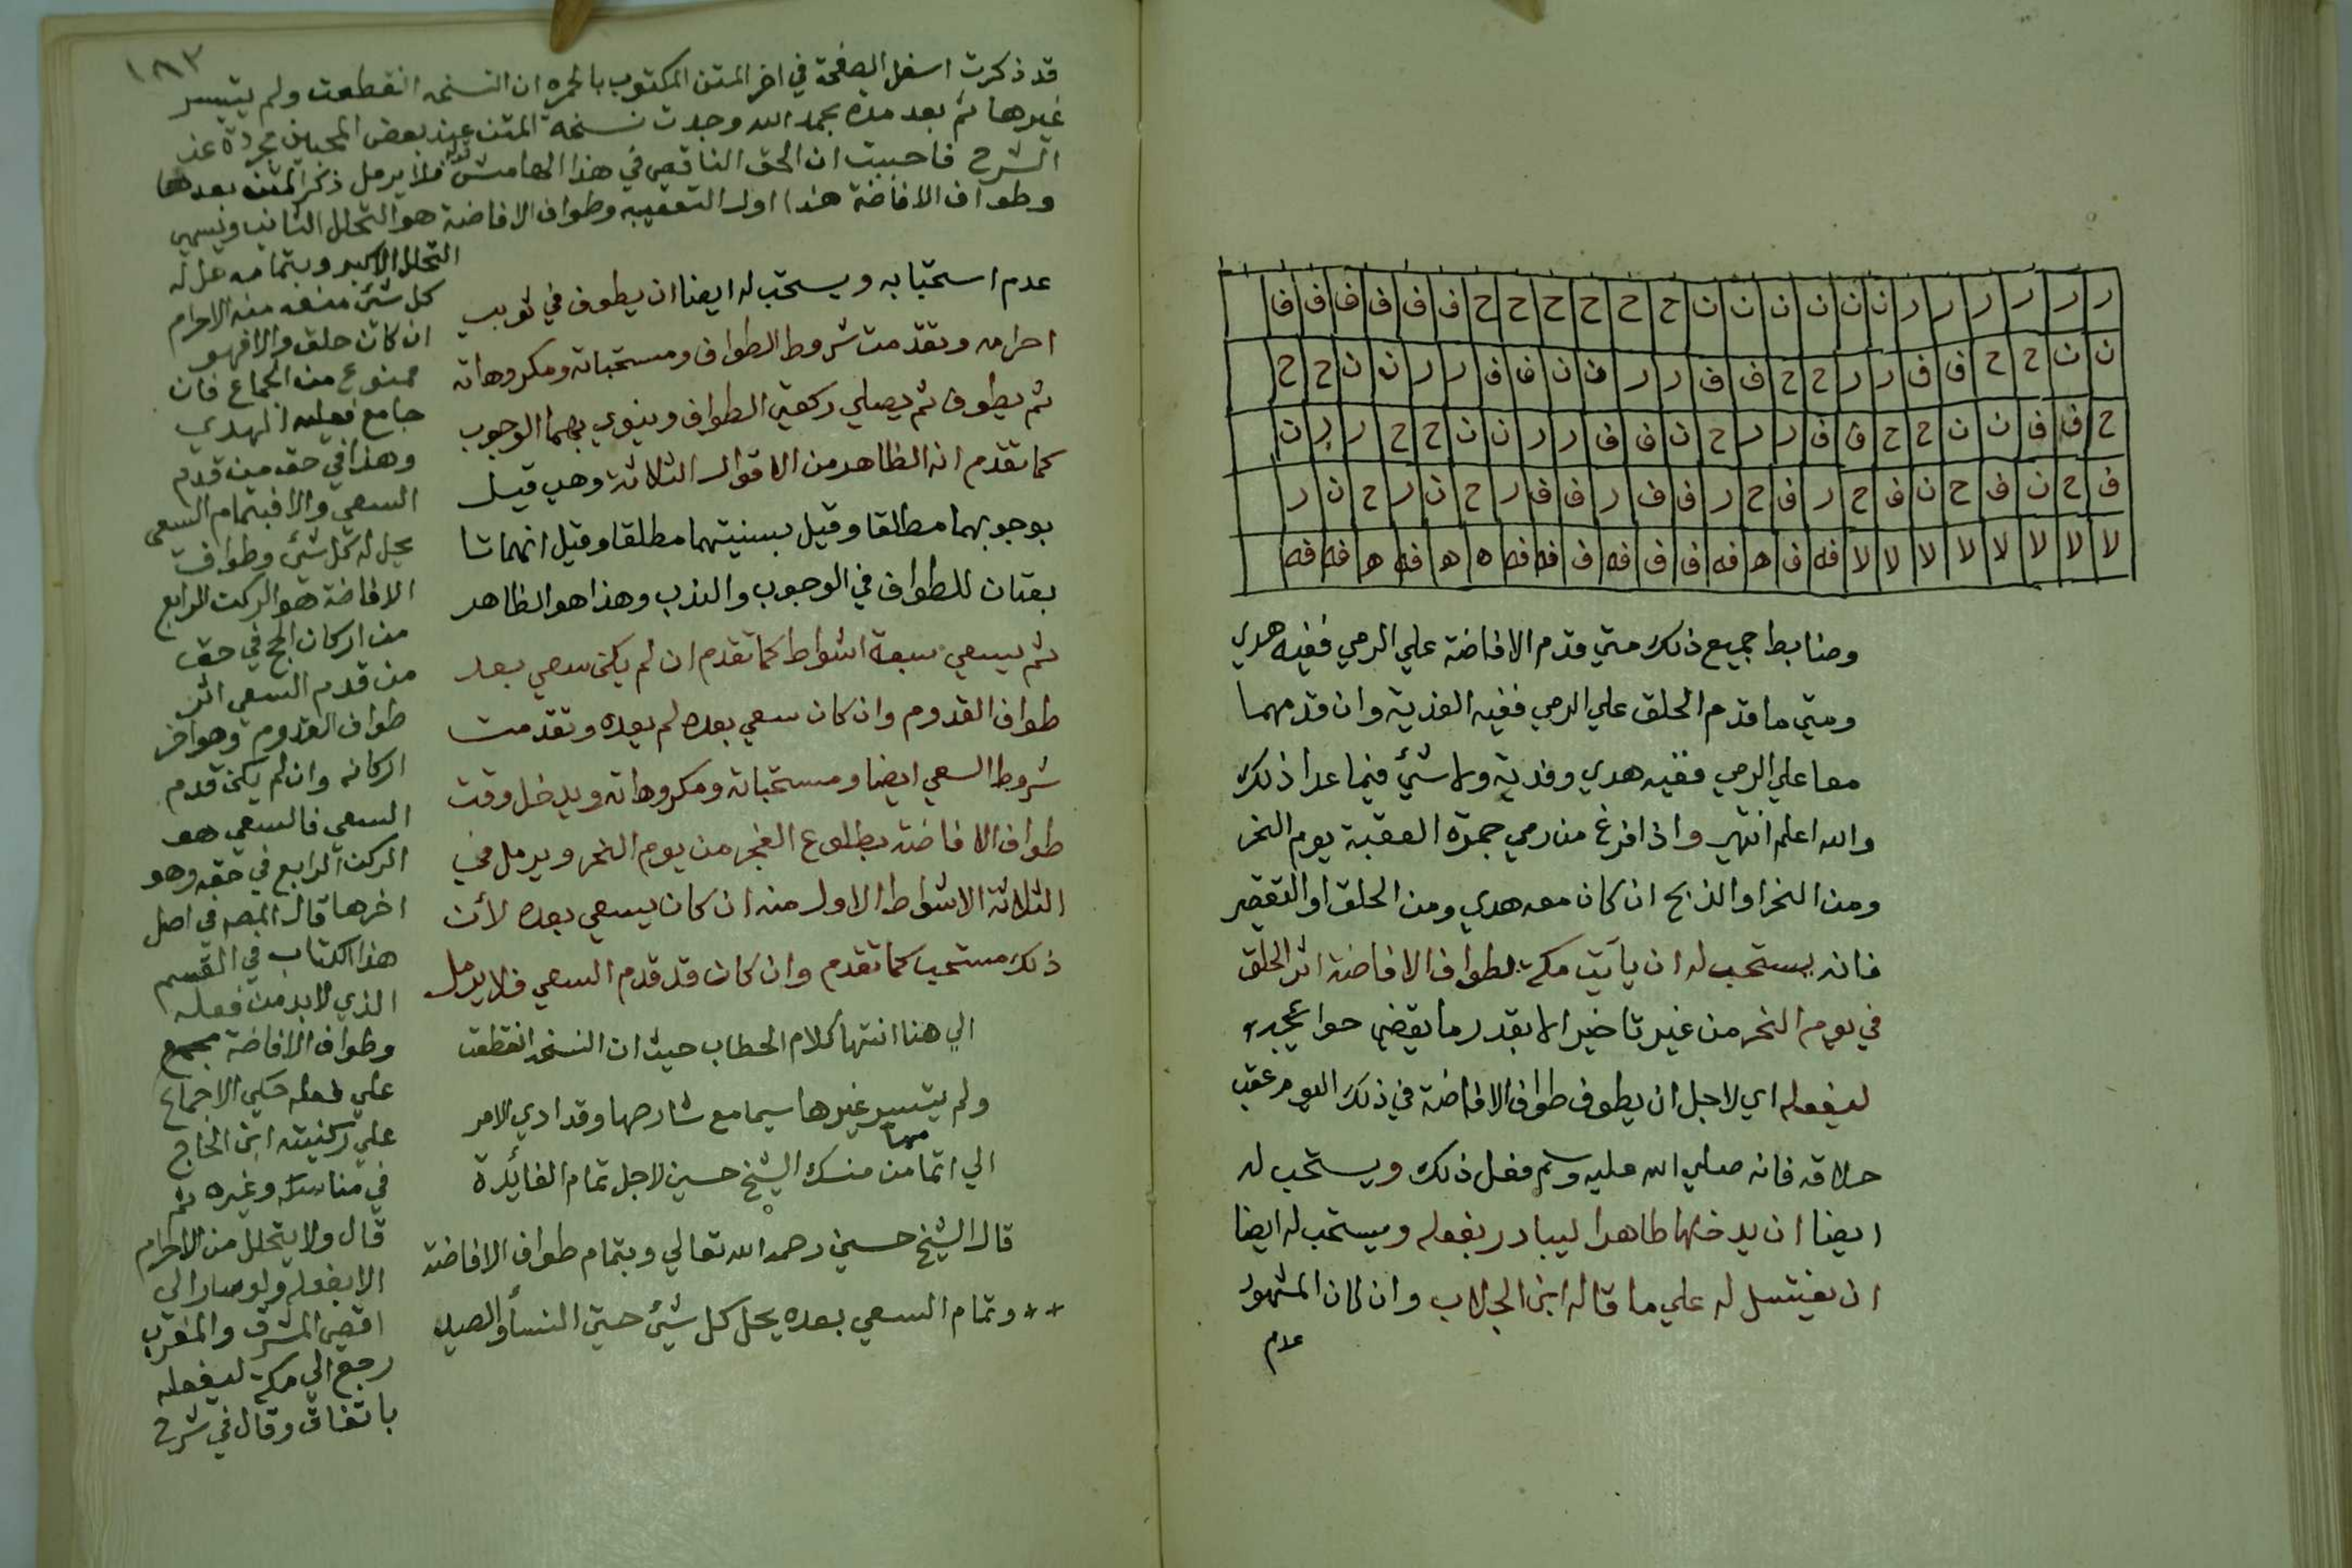 ر ر ر ر ر ر ن ن ن ن ن ن ح ح ح ح ح ح ف ف ف ف ف ف
ن ن ح ح ف ف ر ر ح ح ف ف ر ر ن ن ف ف ر ر ن ن ح ح
ح ف ف ن ن ح ح ف ف ر ر ح ن ف ف ر ر ن ن ح ح ر ر ن
ف ح ن ف ح ن ف ح ر ف ح ر ف ف ر ف ف ر ح ن ر ح ن ر
لا لا لا لا لا لا لا لا فه ف ه فه ف ف فه ف فه فه ه ه فه ه فه فه
وضابط جميع ذلك متي قدم الافاضة علي الرمي ففيه هدي
ومتي ما قدم الحلق علي الرمي ففيه الفدية وان قدمهما
معا علي الرمي ففيه هدي وفدية ولا شئ فيما عدا ذلك
والله اعلم انتهي واذا فرغ من رمي جمرة العقبة يوم النحر
ومن النحر او الذبح ان كان معه هدي ومن الحلق او التقصير
فانه يستحب له ان ياتي مكة لطواف الافاضة اثر الحلق
في يوم النحر من غير تاخير الا بقدر ما يقضي حوايجه
ليفعله اي لاجل ان يطوف طواف الافاضة في ذلك اليوم عقب
حلاقه فانه صلي الله عليه وسلم فعل ذلك ويستحب له
ايضا ان يدخلها طاهرا ليبادر بفعله ويستحب له ايضا
ان يغتسل له علي ما قاله ابن الجلاب وان كان المشهور
عدم
١٨٣
قد ذكرت اسفل الصفحة في اخر المتن المكتوب بالحمره ان النسخه انقطعت ولم يتيسر
غيرها ثم بعد مدة بحمد الله وجدت نسخة المتن عند بعض المحبين مجردة عن
الشرح فاحببت ان الحق الناقص في هذا الهامش قوله فلا يرمل ذكر المتن بعدها
وطواف الافاضة هذا اول التعقيبه وطواف الافاضة هو التحلل الثاني ويسمي
التحلل الاكبر وبتمامه حل له
كل شئ منعه منه الاحرام
ان كان حلق والا فهو
ممنوع من الجماع فان
جامع فعليه الهدي
وهذا في حق من قدم
السعي والا فبتمام السعي
يحل له كل شئ وطواف
الافاضة هو الركن الرابع
من اركان الحج في حق
من قدم السعي اثر
طواف القدوم وهو اخر
اركانه وان لم يكن قدم
السعي فالسعي هو
الركن الرابع في حقه وهو
اخرها قال المصه في اصل
هذا الكتاب في القسم
الذي لابد من فعله
وطواف الافاضة مجمع
علي فعله حكي الاجماع
علي ركنيته ابن الحاج
في مناسكه وغيره ثم
قال ولا يتحلل من الاحرام
الا بفعله ولو صار الي
اقصي المشرق والمغرب
رجع الي مكة ليفعله
باتفاق وقال في شرح
عدم استحبابه ويستحب له ايضا ان يطوف في ثوبي
احرامه وتقدمت شروط الطواف ومستحباته ومكروهاته
ثم يطوف ثم يصلي ركعتي الطواف وينوي بهما الوجوب
كما تقدم انه الظاهر من الاقوال الثلاثة وهي قيل
بوجوبهما مطلقا وقيل بسنيتهما مطلقا وقيل انهما تا
بعتان للطواف في الوجوب والندب وهذا هو الظاهر
ثم يسعي سبعة اشواط كما تقدم ان لم يكن سعي بعد
طواف القدوم وان كان سعي بعده لم يعده وتقدمت
شروط السعي ايضا ومستحباته ومكروهاته ويدخل وقت
طواف الافاضة بطلوع الفجر من يوم النحر ويرمل في
الثلاثة الاشواط الاول منه ان كان يسعي بعده لأن
ذلك مستحب كما تقدم وان كان قد قدم السعي فلا يرمل
الي هنا انتها كلام الحطاب حيث ان النسخه انقطعت
ولم يتيسر غيرها سيما مع شارحها وقد ادي الامر
الي اتمامها من منسك الشيخ حسين لاجل تمام الفائدة
قال الشيخ حسين رحمه الله تعالي وبتمام طواف الافاضة
** وتمام السعي بعده يحل كل شئ حتي النسأ والصيد